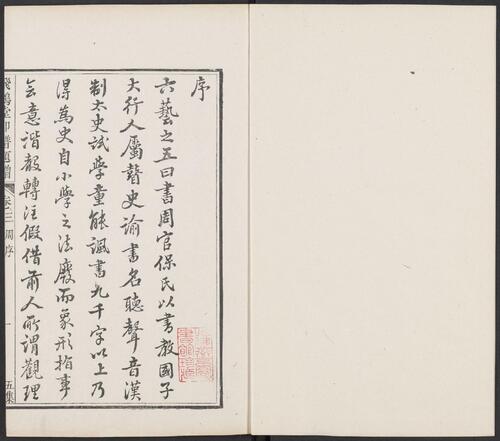 序
六藝之五曰書周官保氏以書教國子
大行人屬瞽史諭書名聽聲音漢
制太史試學童能諷書九千字以上乃
得爲史自小學之法廢而象形指事
會意諧聲轉注假借前人所謂觀理
飛鴻堂印譜
卷三 周序
一
五集